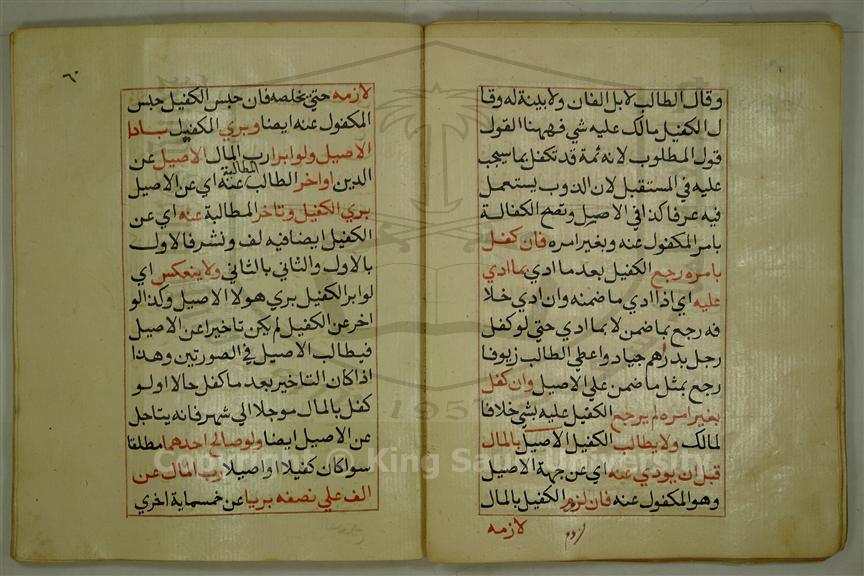 وقال الطالب لا بل الفان ولا بينة له وقا
ل الكفيل مالك عليه شي فههنا القول
قول المطلوب لانه ثمة قد تكفل بما سيجب
عليه في المستقبل لان الدوب يستعمل
فيه عرفا كذا في الاصيل وتصح الكفالة
بامر المكفول عنه وبغير امره فان كفل
بامره رجع الكفيل بعد ما ادي بما ادي
عليه اي اذا ادي ما ضمنه وان ادي خلا
فه رجع بما ضمن لا بما ادي حتي لو كفل
رجل بدرهم جياد واعطي الطالب زيوفا
رجع بمثل ما ضمن علي الاصيل وان كفل
بغير امره لم يرجع الكفيل عليه بشي خلافا
لمالك ولا يطالب الكفيل الاصيل بالمال
قبل ان يودي عنه اي عن جهة الاصيل
وهو المكفول عنه فان لزم الكفيل بالمال
لازمه
٦٠
لازمه حتي يخلصه فان حبس الكفيل حبس
المكفول عنه ايضا وبري الكفيل بادا
الاصيل ولو ابرا رب المال الاصيل عن
الدين او اخر الطالب المطالبة عنه اي عن الاصيل
بري الكفيل وتاخر المطالبة عنه اي عن
الكفيل ايضا فيه لف ونشر فالاول
بالاول والثاني بالثاني ولا ينعكس اي
لو ابر الكفيل بري هو لا الاصيل وكذا لو
اخر عن الكفيل لم يكن تاخيرا عن الاصيل
فيطالب الاصيل في الصورتين وهذا
اذا كان التاخير بعد ما كفل حالا او لو
كفل بالمال موجلا الي شهر فانه يتاجل
عن الاصيل ايضا ولو صالح احدهما مطلقا
سوا كان كفيلا او اصيلا رب المال عن
الف علي نصفه بريا عن خمسماية اخري
Copyright © King Saud University
1957